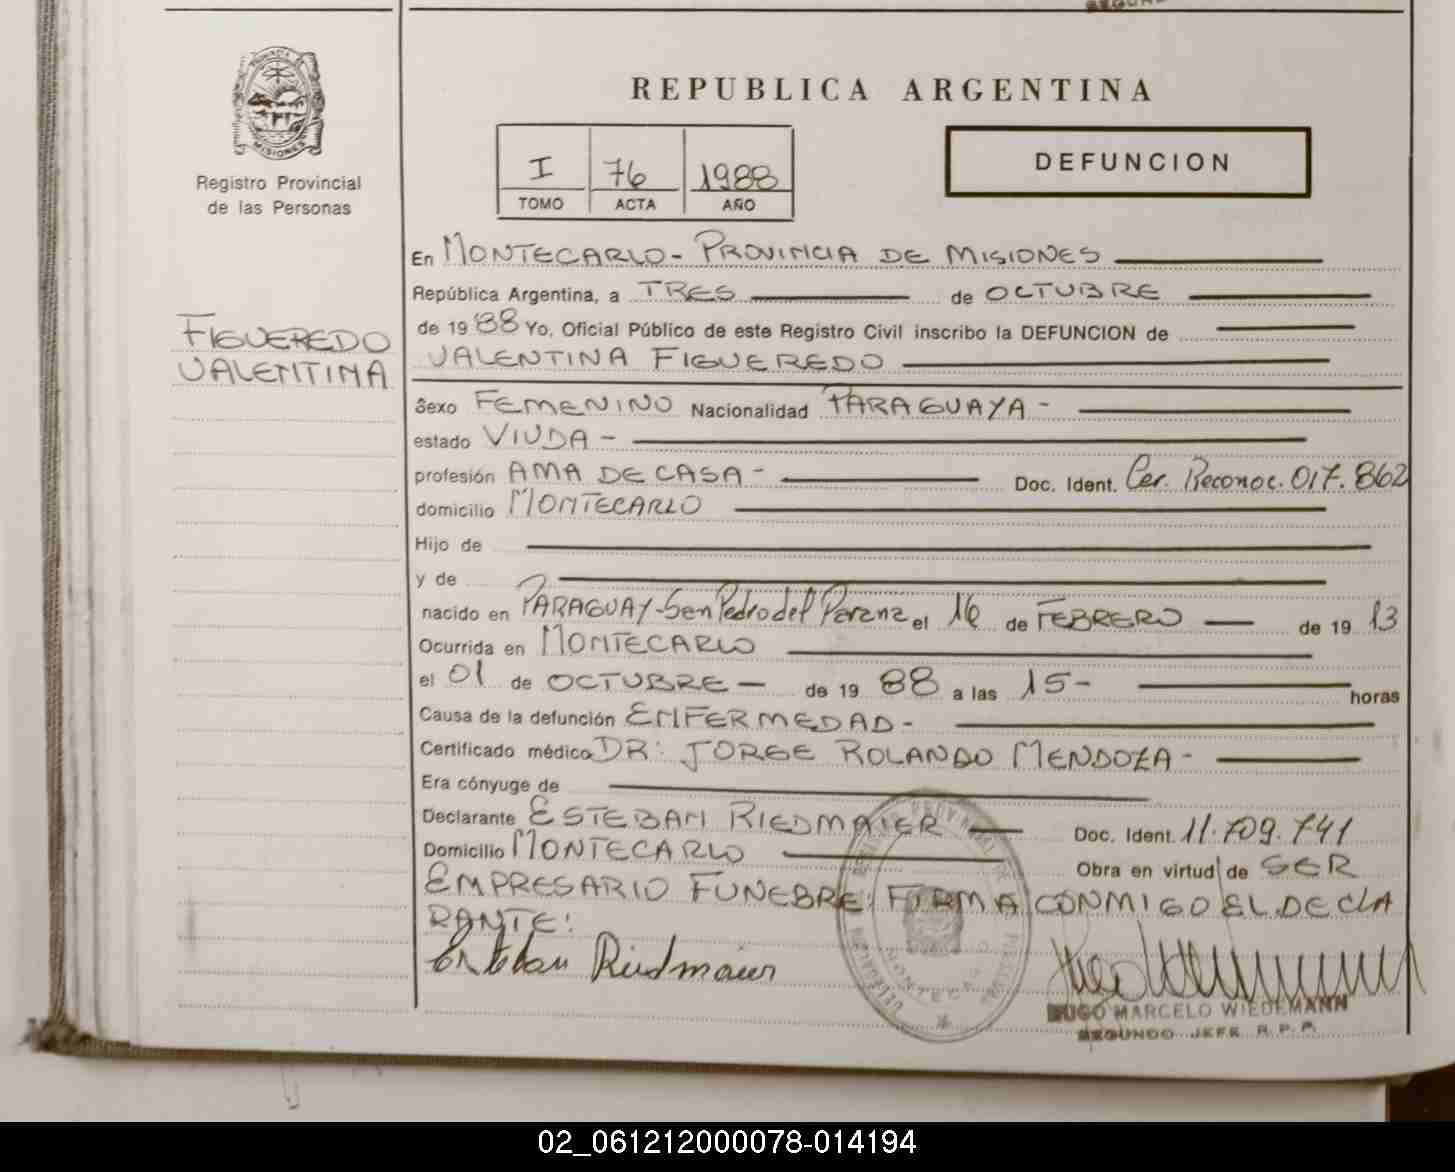 REPUBLICA ARGENTINA
PROVINCIA DE
MISIONES
Registro Provincial
de las Personas
I 76 1988
TOMO ACTA AÑO
DEFUNCION
FIGUEREDO
VALENTINA
En MONTECARLO - PROVINCIA DE MISIONES
República Argentina, a TRES de OCTUBRE
de 1988 Yo, Oficial Público de este Registro Civil inscribo la DEFUNCION de
VALENTINA FIGUEREDO
Sexo FEMENINO Nacionalidad PARAGUAYA -
estado VIUDA -
profesión AMA DE CASA - Doc. Ident. Cer. Reconoc. 017.862
domicilio MONTECARLO
Hijo de
y de
nacido en PARAGUAY - San Pedro del Parana el 16 de FEBRERO de 1913
Ocurrida en MONTECARLO
el 01 de OCTUBRE - de 1988 a las 15 - horas
Causa de la defunción ENFERMEDAD -
Certificado médico DR: JORGE ROLANDO MENDOZA -
Era cónyuge de
Declarante ESTEBAN RIEDMAIER Doc. Ident. 11.709.741
Domicilio MONTECARLO Obra en virtud de SER
EMPRESARIO FUNEBRE: FIRMA CONMIGO EL DECLA
RANTE:
Esteban Riedmaier
HUGO MARCELO WIEDEMANN
SEGUNDO JEFE R.P.P.
MONTECARLO
02_061212000078-014194